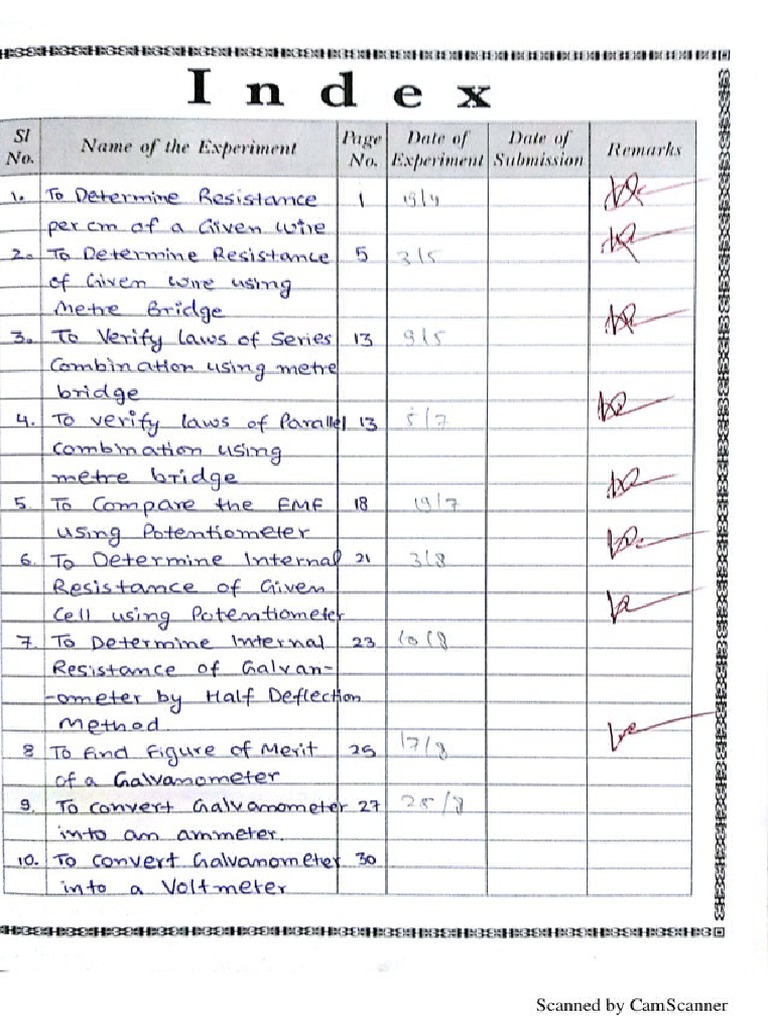 Index
Sl No. Name of the Experiment Page No. Date of Experiment Date of Submission Remarks
1. To Determine Resistance 1 19/4
per cm of a Given wire
2. To Determine Resistance 5 3/5
of Given wire using
Metre Bridge
3. To Verify laws of Series 13 9/5
Combination using metre
bridge
4. To verify laws of Parallel 13 5/7
combination using
metre bridge
5. To Compare the EMF 18 19/7
using Potentiometer
6. To Determine Internal 21 3/8
Resistance of Given
Cell using Potentiometer
7. To Determine Internal 23 10/8
Resistance of Galvan-
-ometer by Half Deflection
Method.
8 To find Figure of Merit 25 17/8
of a Galvanometer
9. To convert Galvanometer 27 25/8
into an ammeter.
10. To convert Galvanometer 30
into a Voltmeter
Scanned by CamScanner